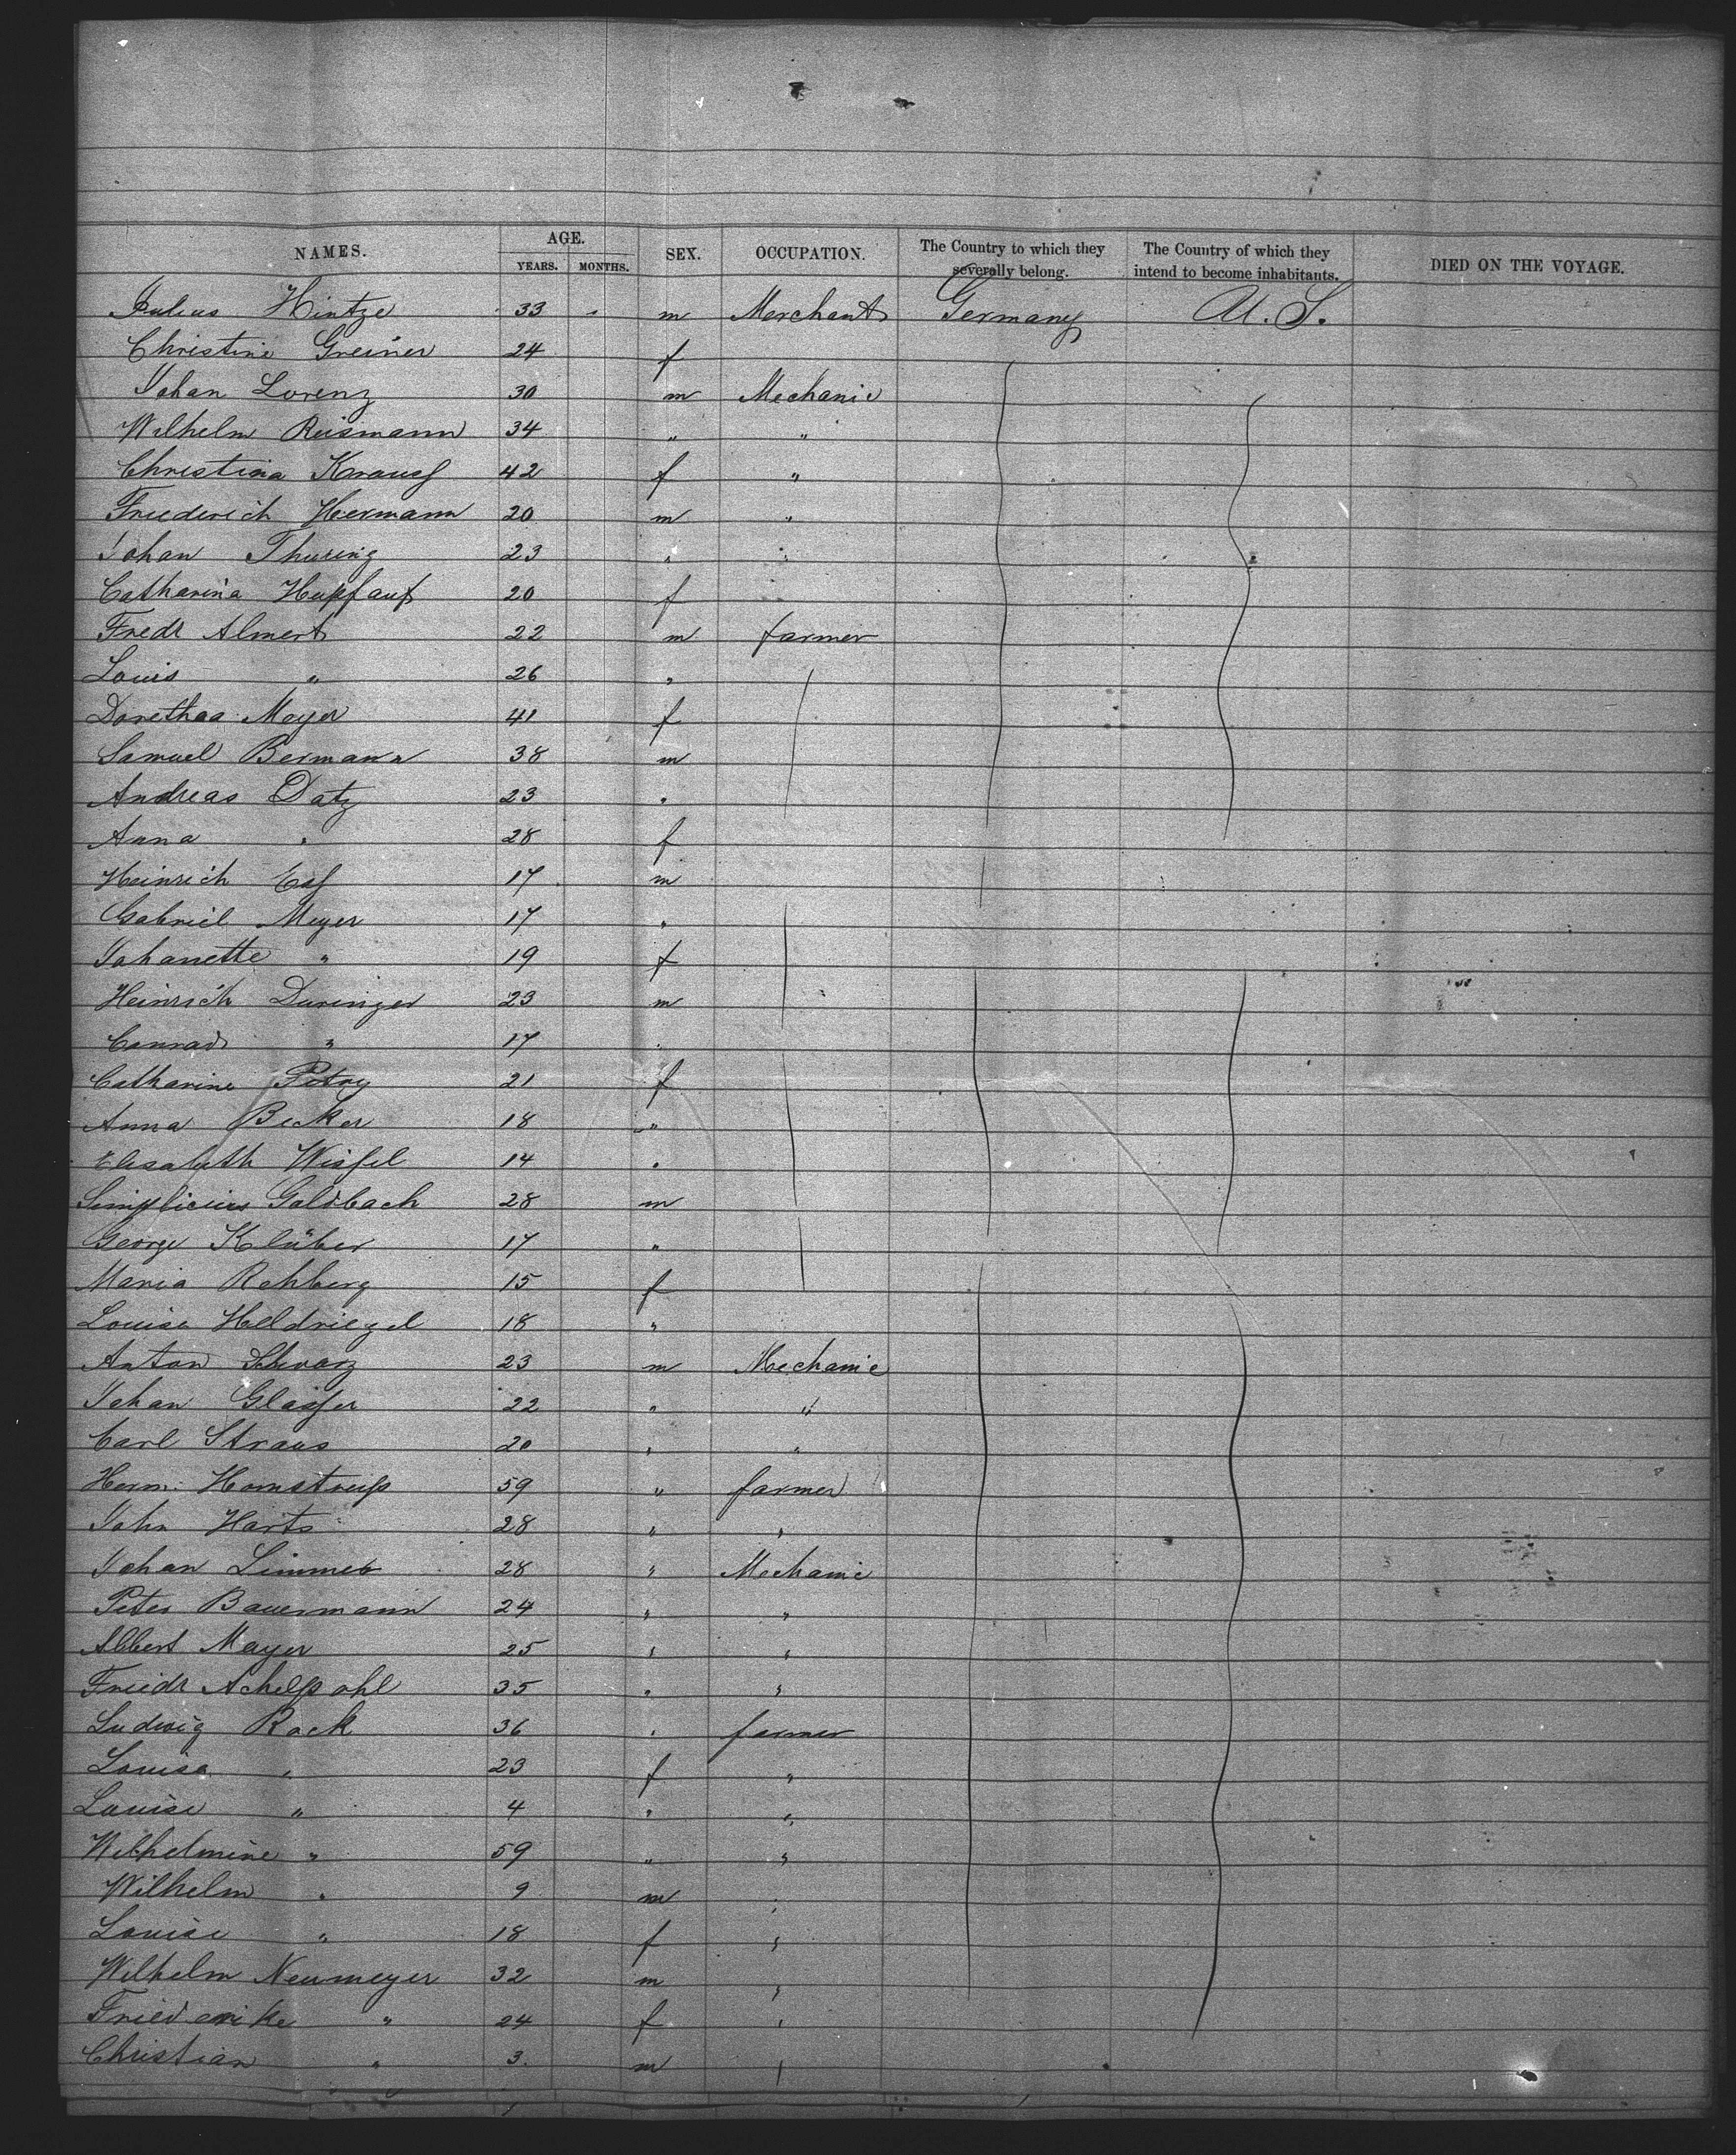 NAMES. AGE. YEARS. MONTHS. SEX. OCCUPATION. The Country to which they severally belong. The Country of which they intend to become inhabitants. DIED ON THE VOYAGE.
Julius Hintze 33 - m Merchant Germany U.S.
Christine Greiner 24 f
Johan Lorenz 30 m Mechanic
Wilhelm Reismann 34 " "
Christina Knauss 42 f "
Friederich Heermann 20 m "
Johan Thuring 23 " "
Catharina Hupfauf 20 f
Fredr Almert 22 m farmer
Louis " 26 "
Dorethea Meyer 41 f
Samuel Bermann 38 m
Andreas Datz 23 "
Anna " 28 f
Heinrich 17 m
Gabriel Meyer 17 "
Johanette " 19 f
Heinrich Duringer 23 m
Conrad " 17 "
Catharine Petry 21 f
Anna Becker 18 "
Elisabeth 14 "
Simplicius Goldbach 28 m
George Klüber 17 "
Maria Rehberg 15 f
Louise Heldriegel 18 "
Anton Schwarz 23 m Mechanic
Johan Glässer 22 " "
Carl Straus 20 " "
Herm. 59 " farmer
John Harts 28 " "
Johan 28 " Mechanic
Peter Bauermann 24 " "
Albert Mayer 25 " "
Friedr Achelpohl 35 " "
Ludwig Rock 36 " farmer
Louisa " 23 f "
Louise " 4 " "
Wilhelmine " 59 " "
Wilhelm " 9 m "
Louise " 18 f "
Wilhelm Neumeyer 32 m "
Friederike " 24 f "
Christian " 3. m "